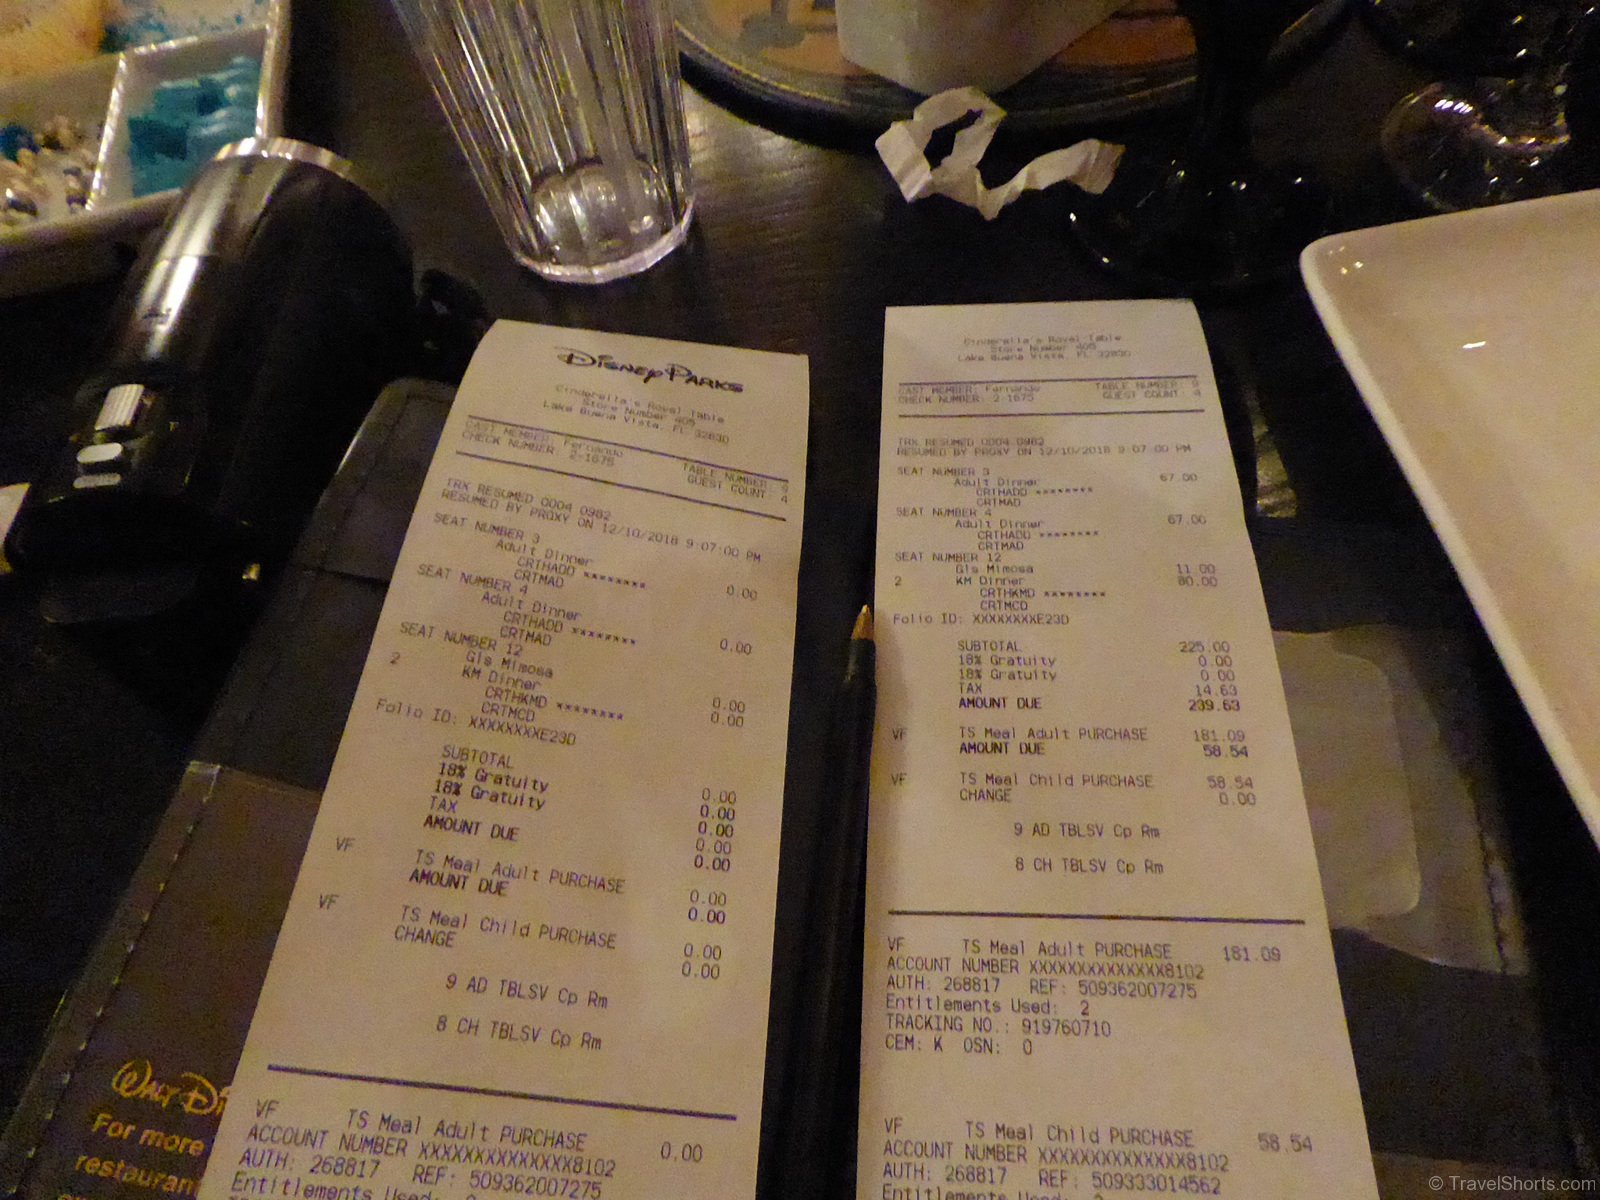 Disney Parks
Cinderella's Royal Table
Store Number 405
Lake Buena Vista, FL 32830
CAST MEMBER: Fernando
CHECK NUMBER: 2-1675
TABLE NUMBER: 9
GUEST COUNT: 4
TRX RESUMED 0004 0982
RESUMED BY PROXY ON 12/10/2018 9:07:00 PM
SEAT NUMBER 3
Adult Dinner 0.00
CRTHADD ********
CRTMAD
SEAT NUMBER 4
Adult Dinner 0.00
CRTHADD ********
CRTMAD
SEAT NUMBER 12
Gls Mimosa 0.00
2 KM Dinner 0.00
CRTHKMD ********
CRTMCD
Folio ID: XXXXXXXXE23D
SUBTOTAL 0.00
18% Gratuity 0.00
18% Gratuity 0.00
TAX 0.00
AMOUNT DUE 0.00
VF TS Meal Adult PURCHASE 0.00
AMOUNT DUE 0.00
VF TS Meal Child PURCHASE 0.00
CHANGE 0.00
9 AD TBLSV Cp Rm
8 CH TBLSV Cp Rm
VF TS Meal Adult PURCHASE 0.00
ACCOUNT NUMBER XXXXXXXXXXXXXX8102
AUTH: 268817 REF: 509362007275
Entitlements Used: 2
Cinderella's Royal Table
Store Number 405
Lake Buena Vista, FL 32830
CAST MEMBER: Fernando TABLE NUMBER: 9
CHECK NUMBER: 2-1675 GUEST COUNT: 4
TRX RESUMED 0004 0982
RESUMED BY PROXY ON 12/10/2018 9:07:00 PM
SEAT NUMBER 3
Adult Dinner 67.00
CRTHADD ********
CRTMAD
SEAT NUMBER 4
Adult Dinner 67.00
CRTHADD ********
CRTMAD
SEAT NUMBER 12
Gls Mimosa 11.00
2 KM Dinner 80.00
CRTHKMD ********
CRTMCD
Folio ID: XXXXXXXXE23D
SUBTOTAL 225.00
18% Gratuity 0.00
18% Gratuity 0.00
TAX 14.63
AMOUNT DUE 239.63
VF TS Meal Adult PURCHASE 181.09
AMOUNT DUE 58.54
VF TS Meal Child PURCHASE 58.54
CHANGE 0.00
9 AD TBLSV Cp Rm
8 CH TBLSV Cp Rm
VF TS Meal Adult PURCHASE 181.09
ACCOUNT NUMBER XXXXXXXXXXXXXX8102
AUTH: 268817 REF: 509362007275
Entitlements Used: 2
TRACKING NO.: 919760710
CEM: K OSN: 0
VF TS Meal Child PURCHASE 58.54
ACCOUNT NUMBER XXXXXXXXXXXXXX8102
AUTH: 268817 REF: 509333014562
Entitlements Used: 2
Walt Di
For more
restauran
© TravelShorts.com